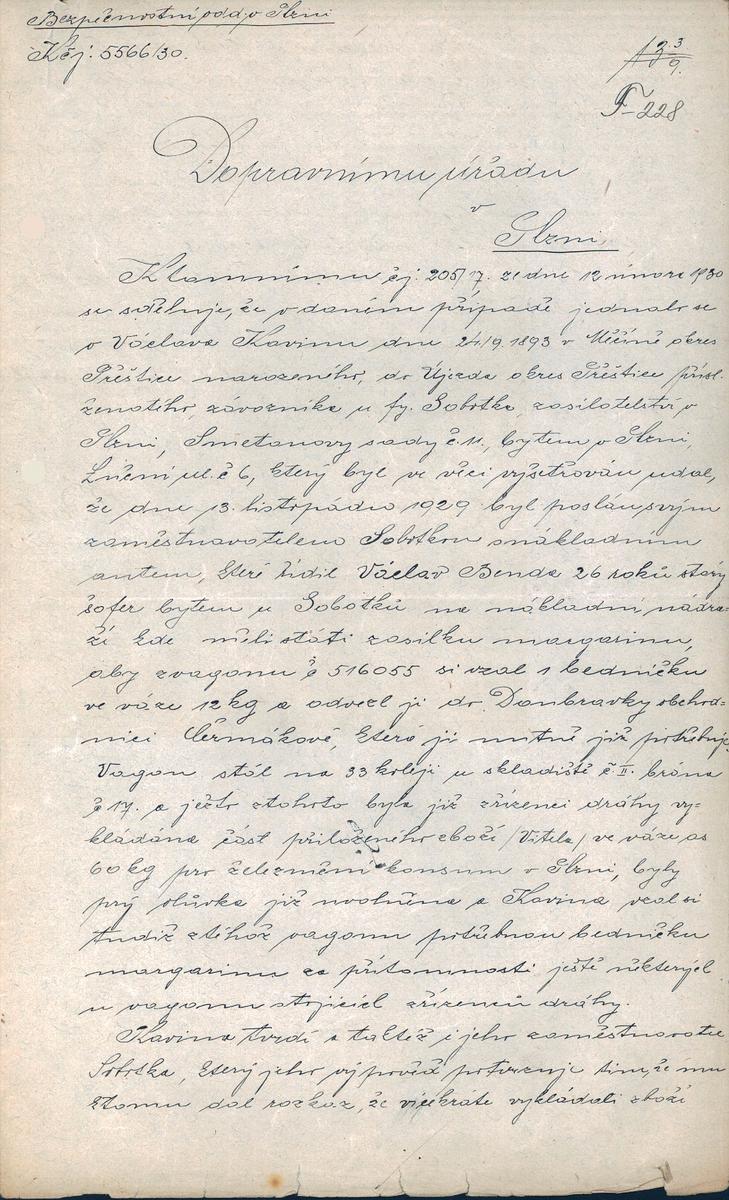 Bezpečnostní odd. v Plzni
K čj: 5566/30.
13 3/9.
F-228
Dopravnímu úřadu
v
Plzni.
K tamnímu čj: 205/17. ze dne 12 února 1930
se sděluje, že v daném případě jednalo se
o Václava Kavinu dne 24./9. 1893 v Měčíně okres
Přeštice narozeného, do Újezda okres Přeštice přísl.
ženatého, závozníka u fy. Sobotka, zasilatelství v
Plzni, Smetanovy sady č 11, bytem v Plzni,
ul. č 6, který byl ve věci vyšetřován udal,
že dne 13. listopadu 1929 byl poslán svým
zaměstnavatelem Sobotkou s nákladním
autem, které řídil Václav Benda 26 roků starý
šofer bytem u Sobotků na nákladní nádra-
ží kde měli státi zásilku margarinu,
aby z vagonu č 516055 si vzal 1 bedničku
ve váze 12 kg a odvezl ji do Doubravky obchod=
nici Čermákové, která ji nutně již potřebuje.
Vagon stál na 33 koleji u skladiště č II. brána
č 17. a ježto z tohoto byla již zřízenci dráhy vy=
kládána část přiloženého zboží /Vitela/ ve váze as
60 kg pro železniční konsum v Plzni, byly
prý olůvka již uvolněna a Kavina vzal si
tudíž z téhož vagonu potřebnou bedničku
margarinu za přítomnosti ještě některých
u vagonu stojících zřízenců dráhy.
Kavina tvrdí a taktéž i jeho zaměstnavatel
Sobotka, který jeho výpověď potvrzuje tím, že mu
k tomu dal rozkaz, že vícekráte vykládali zboží